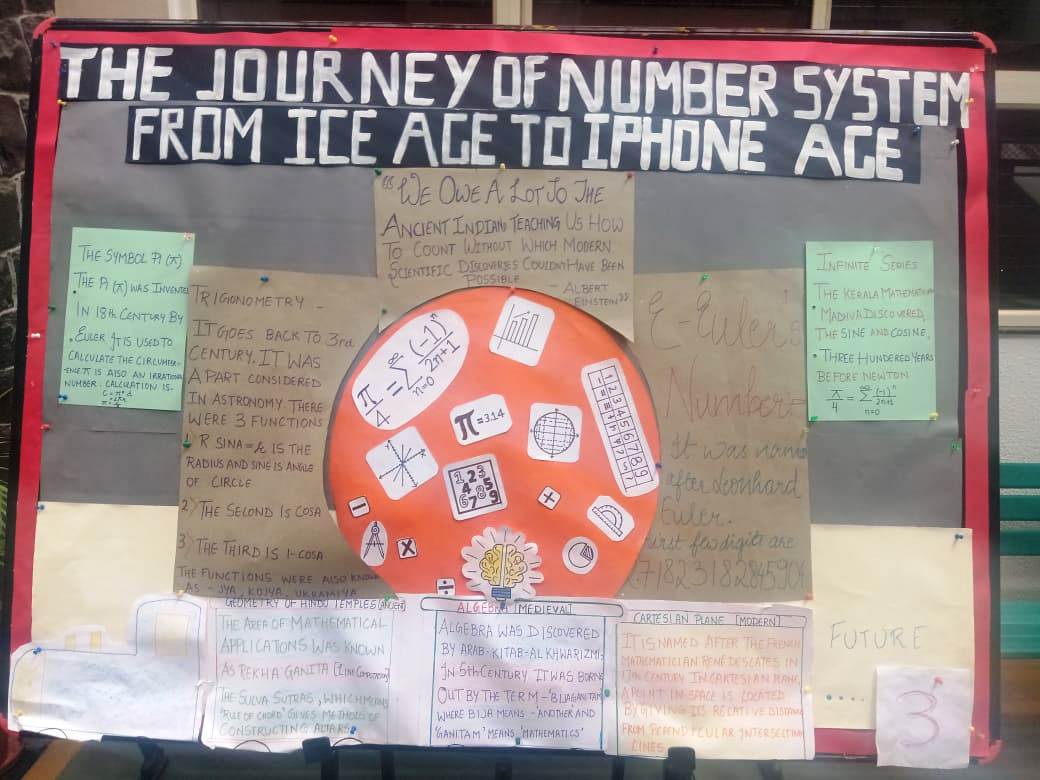 THE JOURNEY OF NUMBER SYSTEM
FROM ICE AGE TO IPHONE AGE
"WE OWE A LOT TO THE
ANCIENT INDIANS TEACHING US HOW
TO COUNT WITHOUT WHICH MODERN
SCIENTIFIC DISCOVERIES COULDN'T HAVE BEEN
POSSIBLE
- ALBERT
EINSTEIN"
THE SYMBOL PI (π)
• THE PI (π) WAS INVENTE
IN 18th CENTURY BY
• EULER. It IS USED TO
CALCULATE THE CIRCUMFER-
ENCE π IS ALSO AN IRRATIONAL
NUMBER. CALCULATION IS-
TRIGONOMETRY -
IT GOES BACK TO 3rd
CENTURY. IT WAS
A PART CONSIDERED
IN ASTRONOMY. THERE
WERE 3 FUNCTIONS
1) R SINA = IS THE
RADIUS AND SINE IS ANGLE
OF CIRCLE
2) THE SECOND IS COSA
3) THE THIRD IS 1-COSA
THE FUNCTIONS WERE ALSO KNOWN
AS - JYA, KOJYA, UKRAMJYA
π/4 = ∞ Σ n=0 (-1)ⁿ/2n+1
π=3.14
1 2 3 4 5 6 7 8 9
1 2 3
4 5
6 7 8 9
+
-
X
÷
E-Euler's
Number-
It was name
after Leonhard
Euler.
First few digits are
2.71823182845904
INFINITE SERIES
• THE KERALA MATHEMATICIAN
MADHVA DISCOVERED
THE SINE AND COSINE,
• THREE HUNDRED YEARS
BEFORE NEWTON
π/4 = ∞ Σ n=0 (-1)ⁿ/2n+1
GEOMETRY OF HINDU TEMPLES (ANCIENT)
THE AREA OF MATHEMATICAL
APPLICATIONS WAS KNOWN
AS REKHA GANITA (LINE COMPUTATION)
THE SULVA SUTRAS, WHICH MEANS
"RULE OF CHORD" GIVES METHODS OF
CONSTRUCTING ALTARS
ALGEBRA [MEDIEVAL]
ALGEBRA WAS DISCOVERED
BY ARAB-KITAB-AL KHWARIZMI.
In 5th CENTURY IT WAS BORNE
OUT BY THE TERM - 'BIJAGANITAM'
WHERE BIJA MEANS - 'ANOTHER' AND
'GANITAM' MEANS 'MATHEMATICS'
CARTESIAN PLANE [MODERN]
IT IS NAMED AFTER THE FRENCH
MATHEMATICIAN RENÉ DESCATES IN
17th CENTURY IN CARTESIAN PLANE,
A POINT IN SPACE IS LOCATED
BY GIVING ITS RELATIVE DISTANCE
FROM PERPENDICULAR INTERSECTING
LINES
FUTURE
.....
3